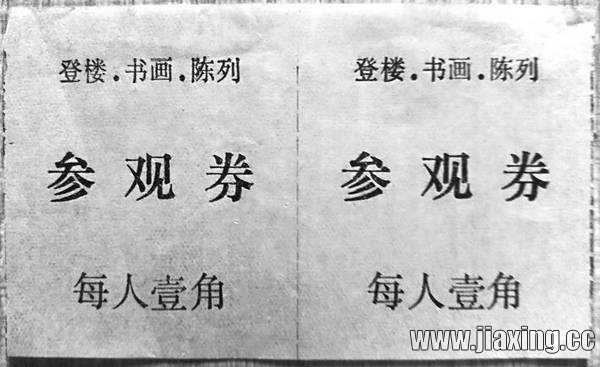 登楼.书画.陈列
参观券
每人壹角
登楼.书画.陈列
参观券
每人壹角
www.jiaxing.cc